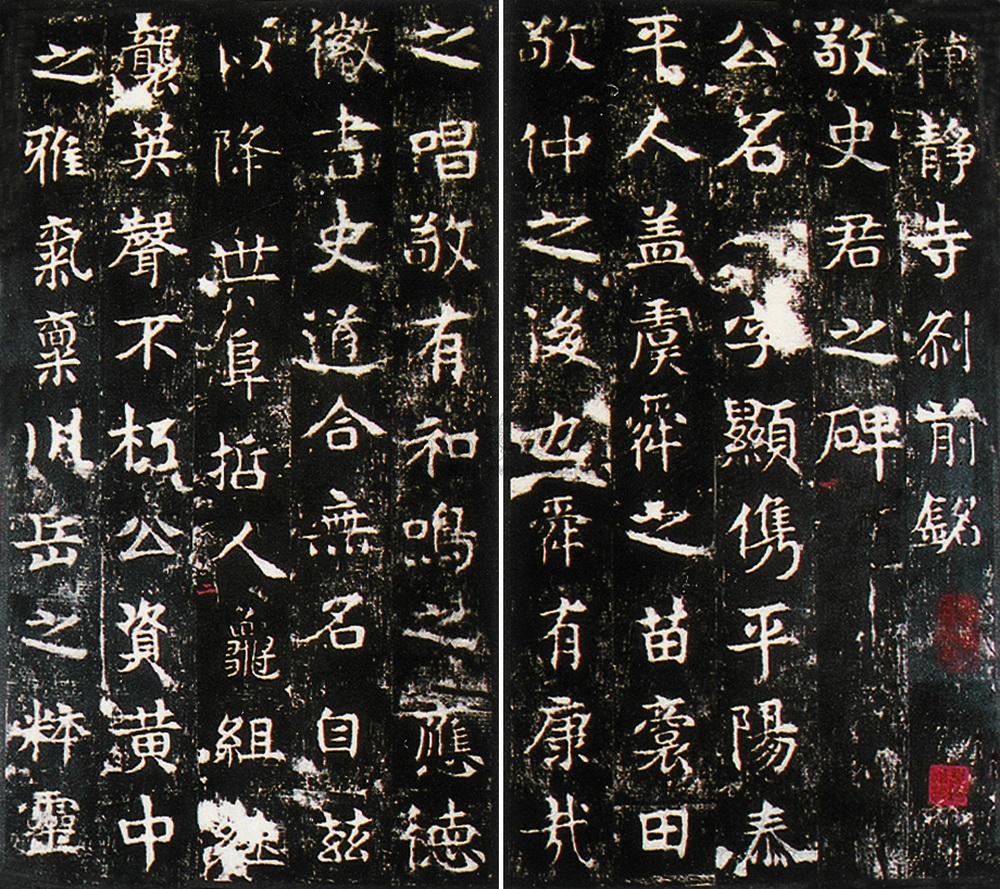 禅静寺刹前铭
敬史君之碑
公名字顯儁平陽泰
平人盖虞舜之苗裔田
敬仲之後也舜有康哉
之唱敬有和鳴之應德
徽書史道合無名自茲
以降世阜哲人龜組
襲英聲不朽公資黄中
之雅氣稟川岳之粹靈